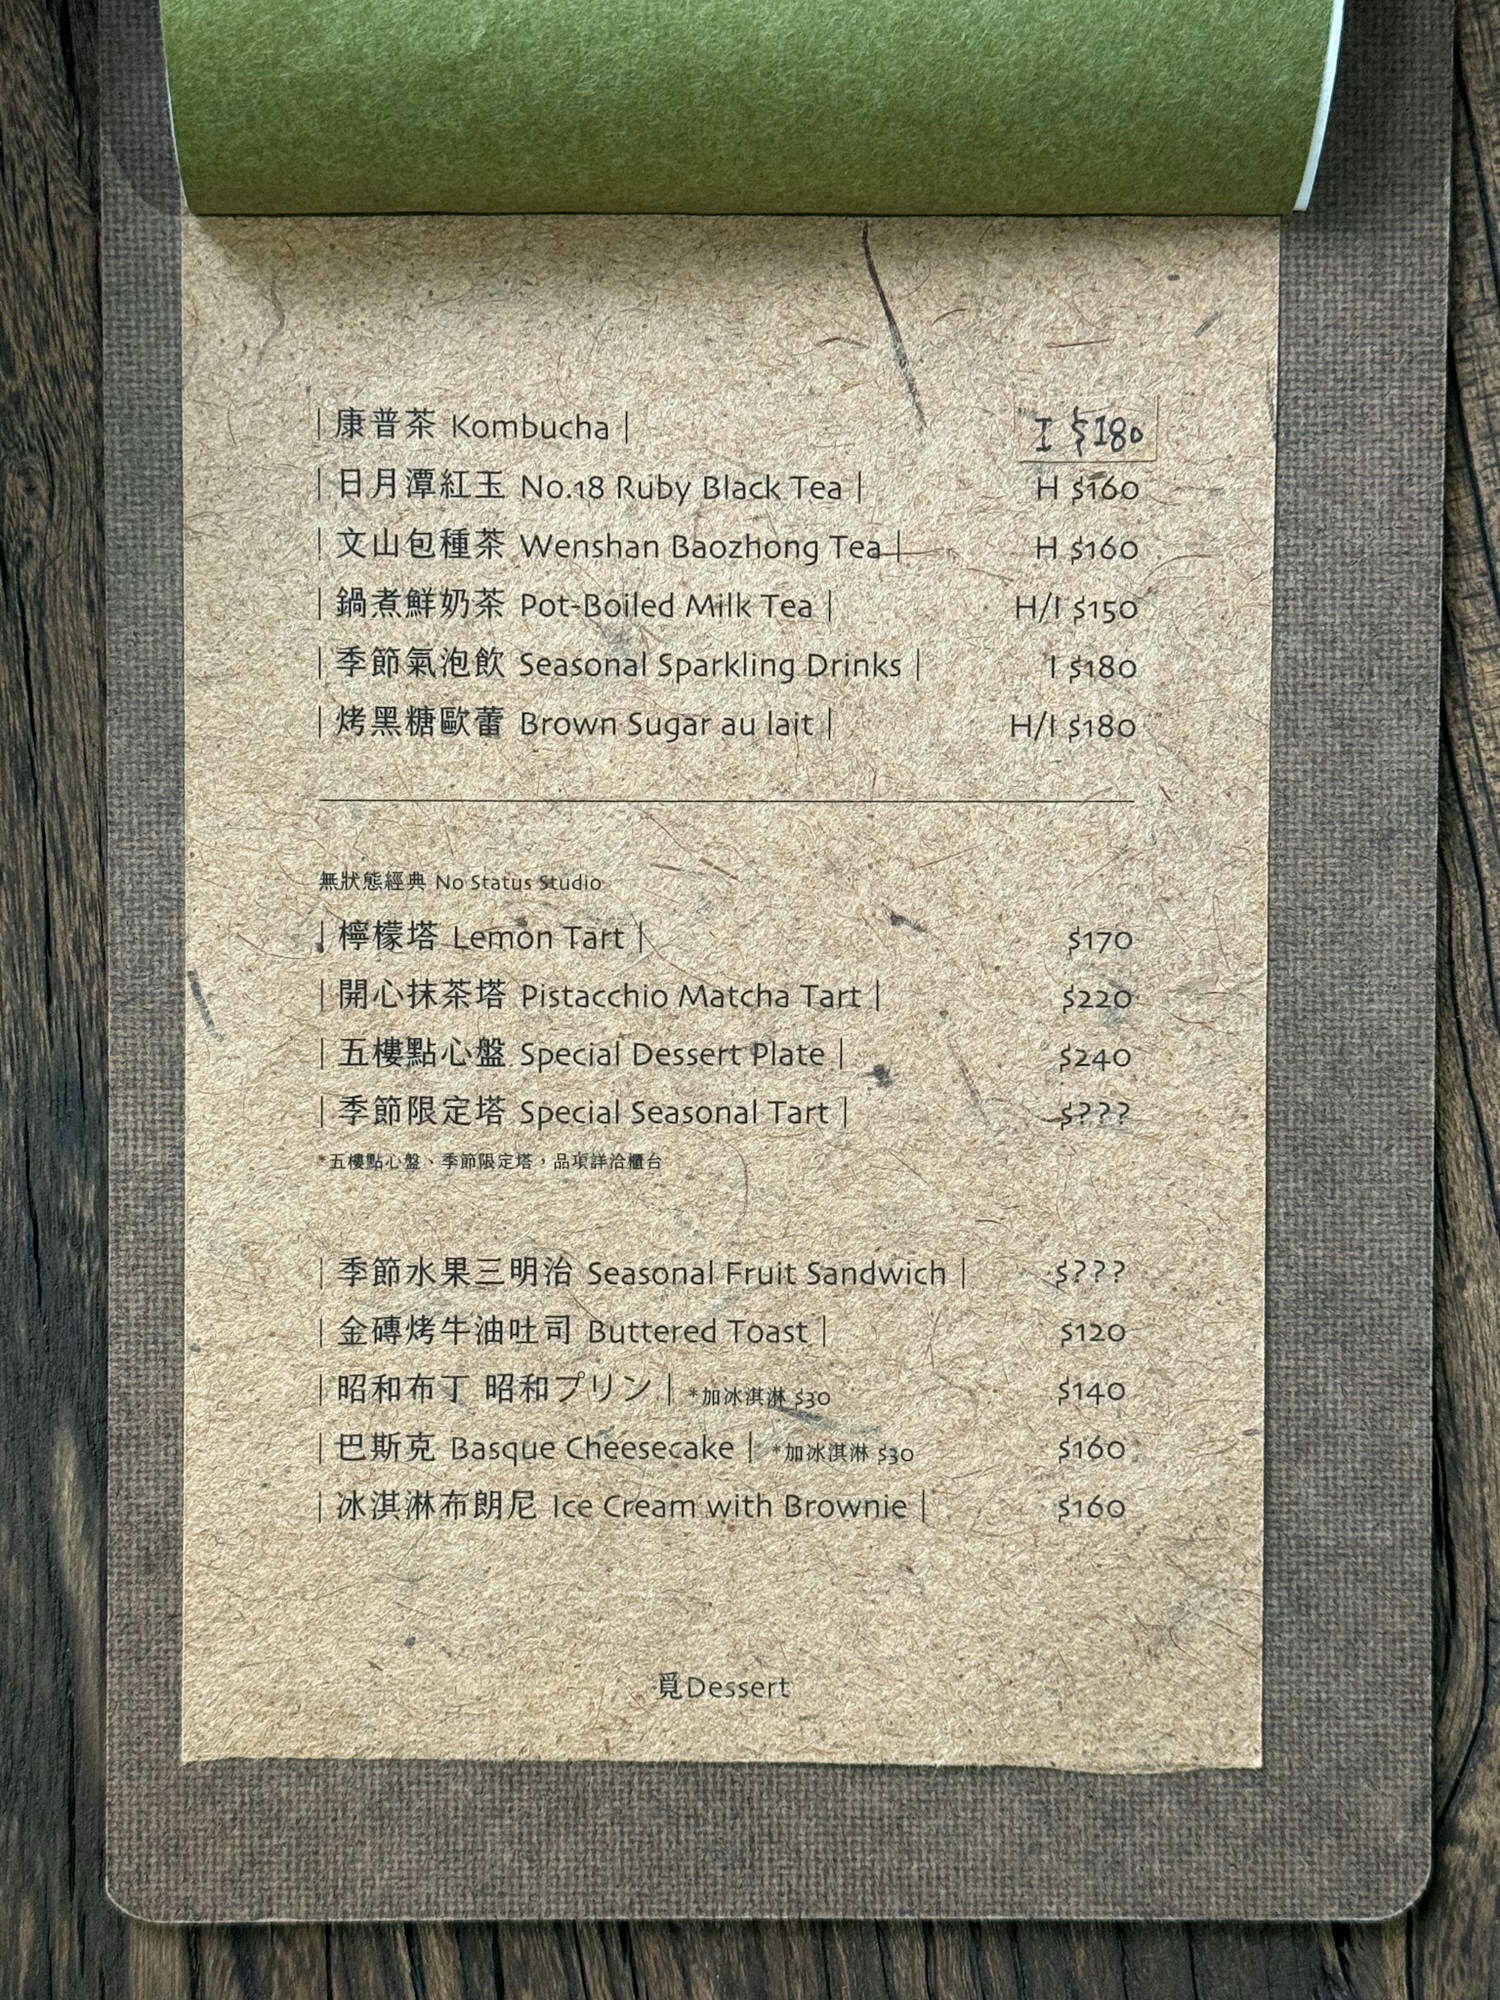 | 康普茶 Kombucha | I $180
| 日月潭紅玉 No.18 Ruby Black Tea | H $160
| 文山包種茶 Wenshan Baozhong Tea | H $160
| 鍋煮鮮奶茶 Pot-Boiled Milk Tea | H/I $150
| 季節氣泡飲 Seasonal Sparkling Drinks | I $180
| 烤黑糖歐蕾 Brown Sugar au lait | H/I $180
無狀態經典 No Status Studio
| 檸檬塔 Lemon Tart | $170
| 開心抹茶塔 Pistacchio Matcha Tart | $220
| 五樓點心盤 Special Dessert Plate | $240
| 季節限定塔 Special Seasonal Tart | $???
*五樓點心盤、季節限定塔，品項詳洽櫃台
| 季節水果三明治 Seasonal Fruit Sandwich | $???
| 金磚烤牛油吐司 Buttered Toast | $120
| 昭和布丁 昭和プリン | *加冰淇淋 $30 $140
| 巴斯克 Basque Cheesecake | *加冰淇淋 $30 $160
| 冰淇淋布朗尼 Ice Cream with Brownie | $160
覓Dessert